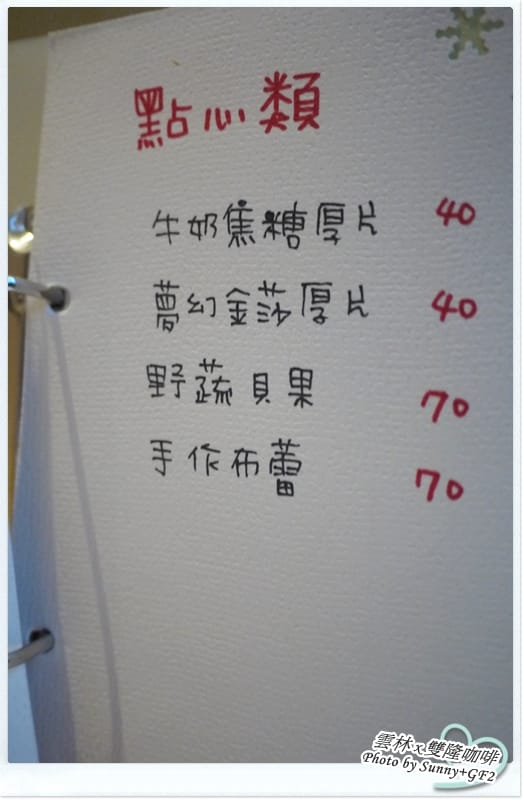 點心類
牛奶焦糖厚片 40
夢幻金莎厚片 40
野蔬貝果 70
手作布蕾 70
雲林x雙隆咖啡
Photo by Sunny+GF2